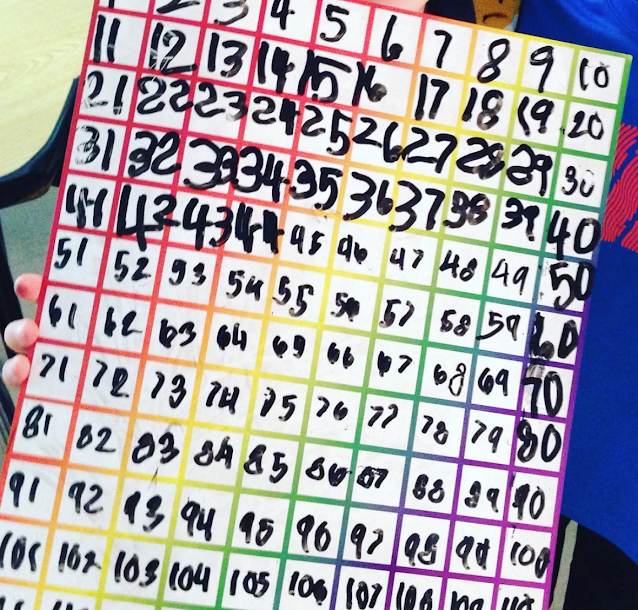 1 2 3 4 5 6 7 8 9 10
11 12 13 14 15 16 17 18 19 20
21 22 23 24 25 26 27 28 29 30
31 32 33 34 35 36 37 38 39 40
41 42 43 44 45 46 47 48 49 50
51 52 53 54 55 56 57 58 59 60
61 62 63 64 65 66 67 68 69 70
71 72 73 74 75 76 77 78 79 80
81 82 83 84 85 86 87 88 89 90
91 92 93 94 95 96 97 98 99 100
101 102 103 104 105 106 107 108